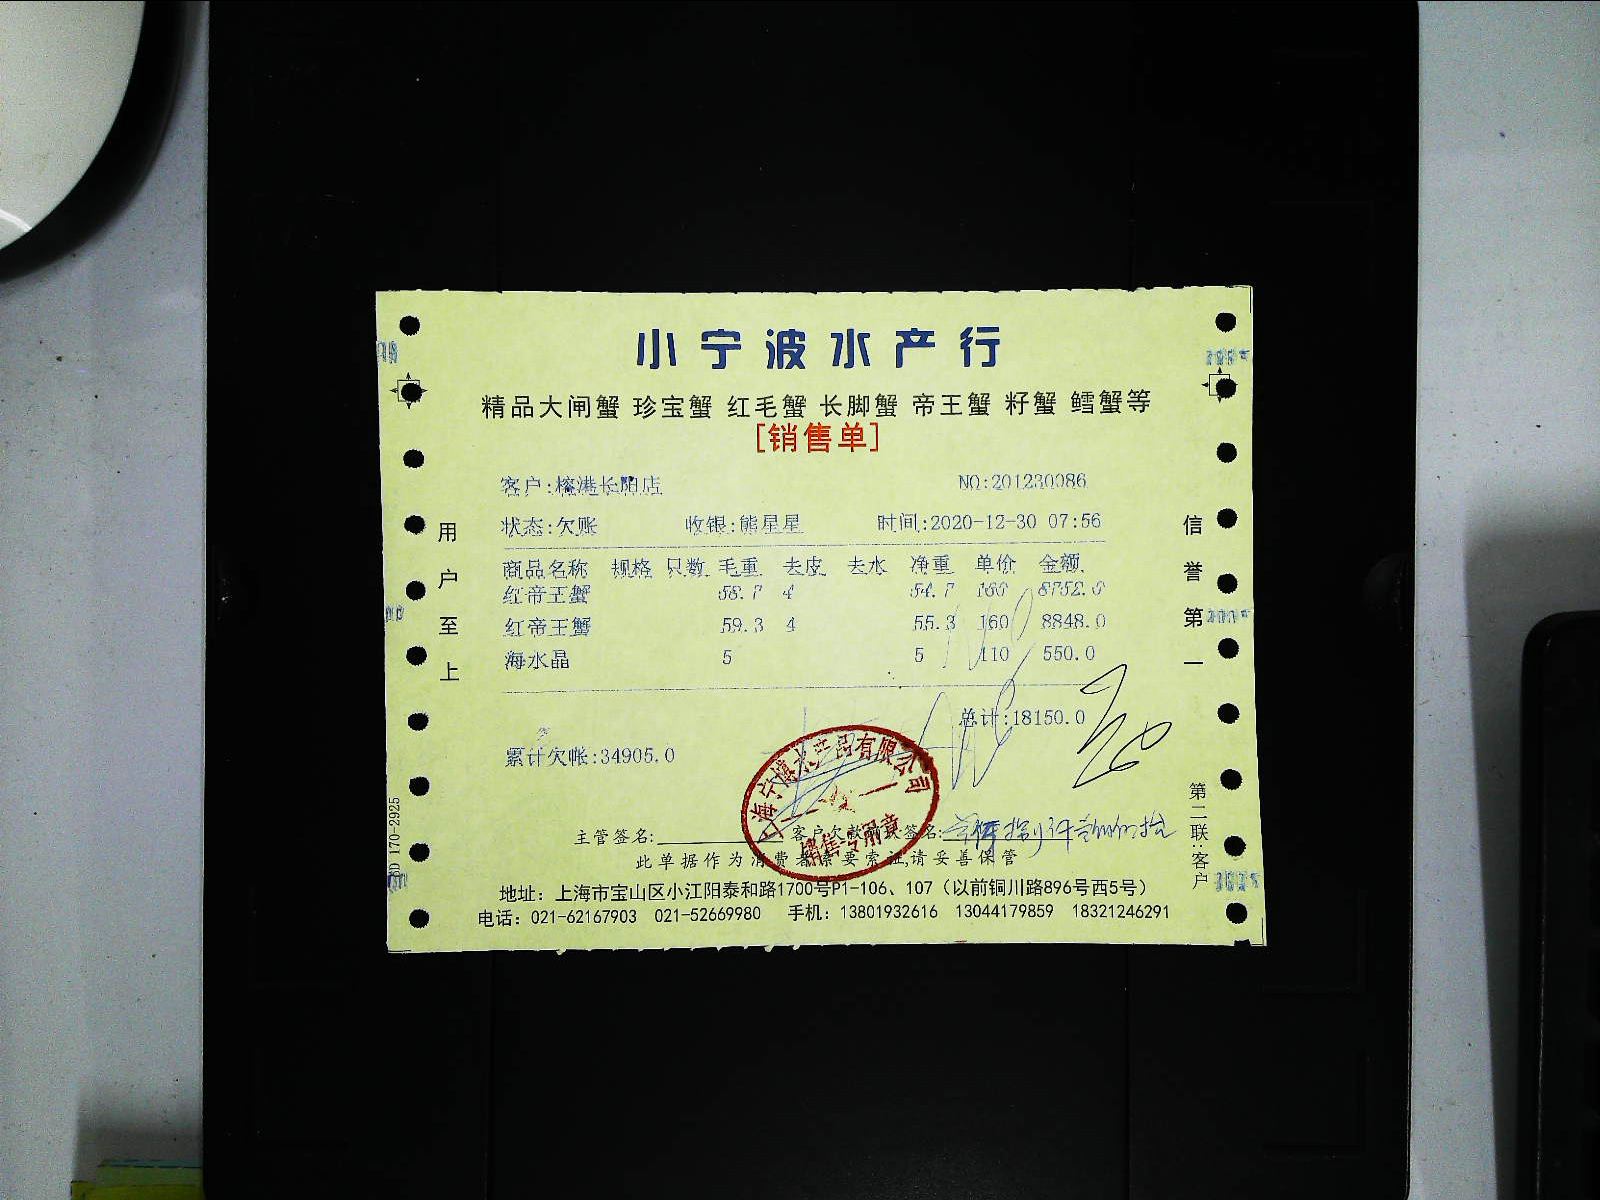 小宁波水产行
精品大闸蟹 珍宝蟹 红毛蟹 长脚蟹 帝王蟹 籽蟹 鳕蟹等
[销售单]
客户:榕港长阳店 NO:201230086
状态:欠账 收银:熊星星 时间:2020-12-30 07:56
商品名称 规格 只数 毛重 去皮 去水 净重 单价 金额
红帝王蟹 58.7 4 54.7 160 8752.0
红帝王蟹 59.3 4 55.3 160 8848.0
海水晶 5 5 110 550.0
总计:18150.0
累计欠帐:34905.0
主管签名: 客户欠款确认签名:
此单据作为消费者索要索证,请妥善保管
地址：上海市宝山区小江阳泰和路1700号P1-106、107（以前铜川路896号西5号）
电话：021-62167903 021-52669980 手机：13801932616 13044179859 18321246291
用户至上
信誉第一
第二联:客户
170-2925
销售专用章